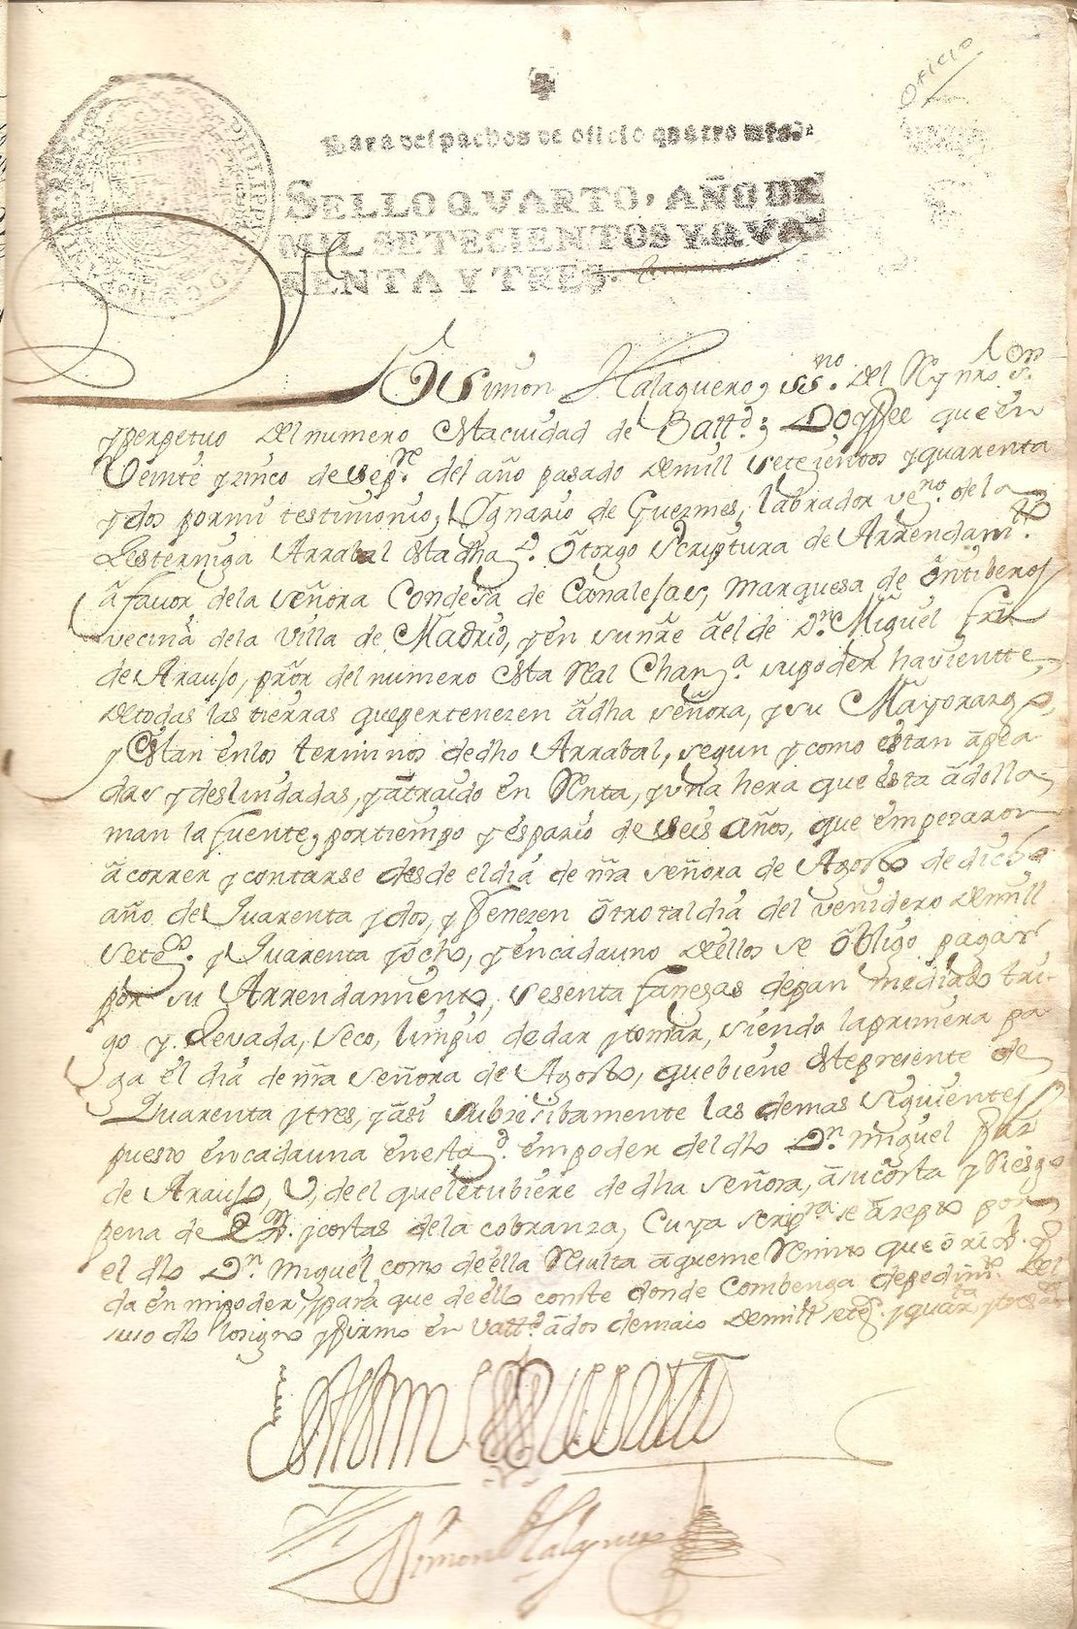 Oficio
Para despachos de oficio quatro mrs.
SELLO QVARTO, AÑO DE
MIL SETECIENTOS Y QVA
RENTA Y TRES.
Yo Simon Halaguero, ss.no del Rey nro s.r
y perpetuo del numero desta cuidad de Vall.d; Doy fee que en
Veinte y zinco de sep.re del año pasado de mill setezientos y quarenta
y dos por mi testimonio, Ygnazio de Guermes, labrador ve.no de la
Zisterniga Arrabal desta dha z.d Otorgo scriptura de Arrendam.to
â favor de la señora Condesa de Canalejas, Marquesa de ôntiberos
vecina de la Villa de Madrid, y en su nre âel de D.n Miguel frz
de Araujo, pror del numero desta Real Chanz.a su poder haviente,
de todas las tierras que pertenezen â dha señora, y su Mayorazgo,
y Estan en los terminos de dho Arrabal, segun y como estan âpea
das y deslindadas, y âtraido en Renta, y una hera que esta âdo lla
man la fuente, por tiempo y espazio de seis años, que empezaron
â correr y contarse desde el dia de nra señora de Agosto de dicho
año de Quarenta y dos, y fenezen ôtro tal dia del venidero de mill
setez.s y Quarenta y ôcho, y en cada uno de ellos se ôbligo pagar
por su Arrendamiento, sesenta fanegas de pan mediado tri
go y Zevada, seco, limpio de dar y tomar, siendo la primera pa
ga el dia de nra señora de Agosto, que biene deste presente de
Quarenta y tres, y âsi subzesibamente las demas siguientes
puesto en cada una en esta z.d en poder del dho D.n Miguel frz
de Araujo, V, de el que le tubiere de dha señora, â su costa y Riesgo
pena de y costas de la cobranza, Cuya scrip.ra se âzepto por
el dho D.n Miguel como de ella Resulta âque me Remito que ôrix.l que
da en mi poder, y para que de ello conste donde Combenga de pedim.to del
suso dho lo signo y firmo en Vall.d â dos de maio de mill setez.s y quar.ta y tres
Simon Halaguero